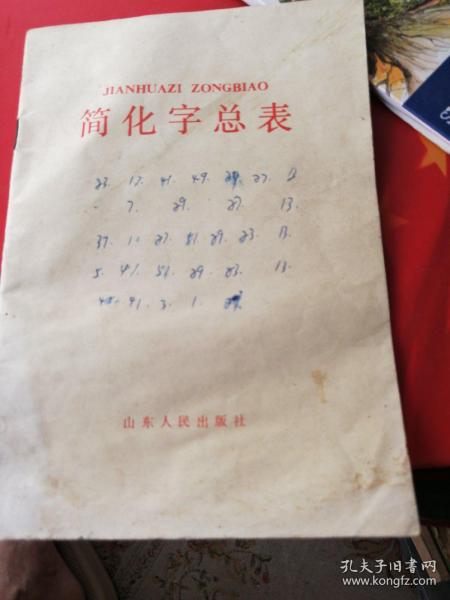 JIANHUAZI ZONGBIAO
简化字总表
23. 17. 41. 49. 27.
7. 29. 27. 13.
37. 1. 27. 51. 29. 23. 13.
5. 41. 51. 29. 23. 13.
41. 3. 1.
山东人民出版社
孔夫子旧书网
www.kongfz.com